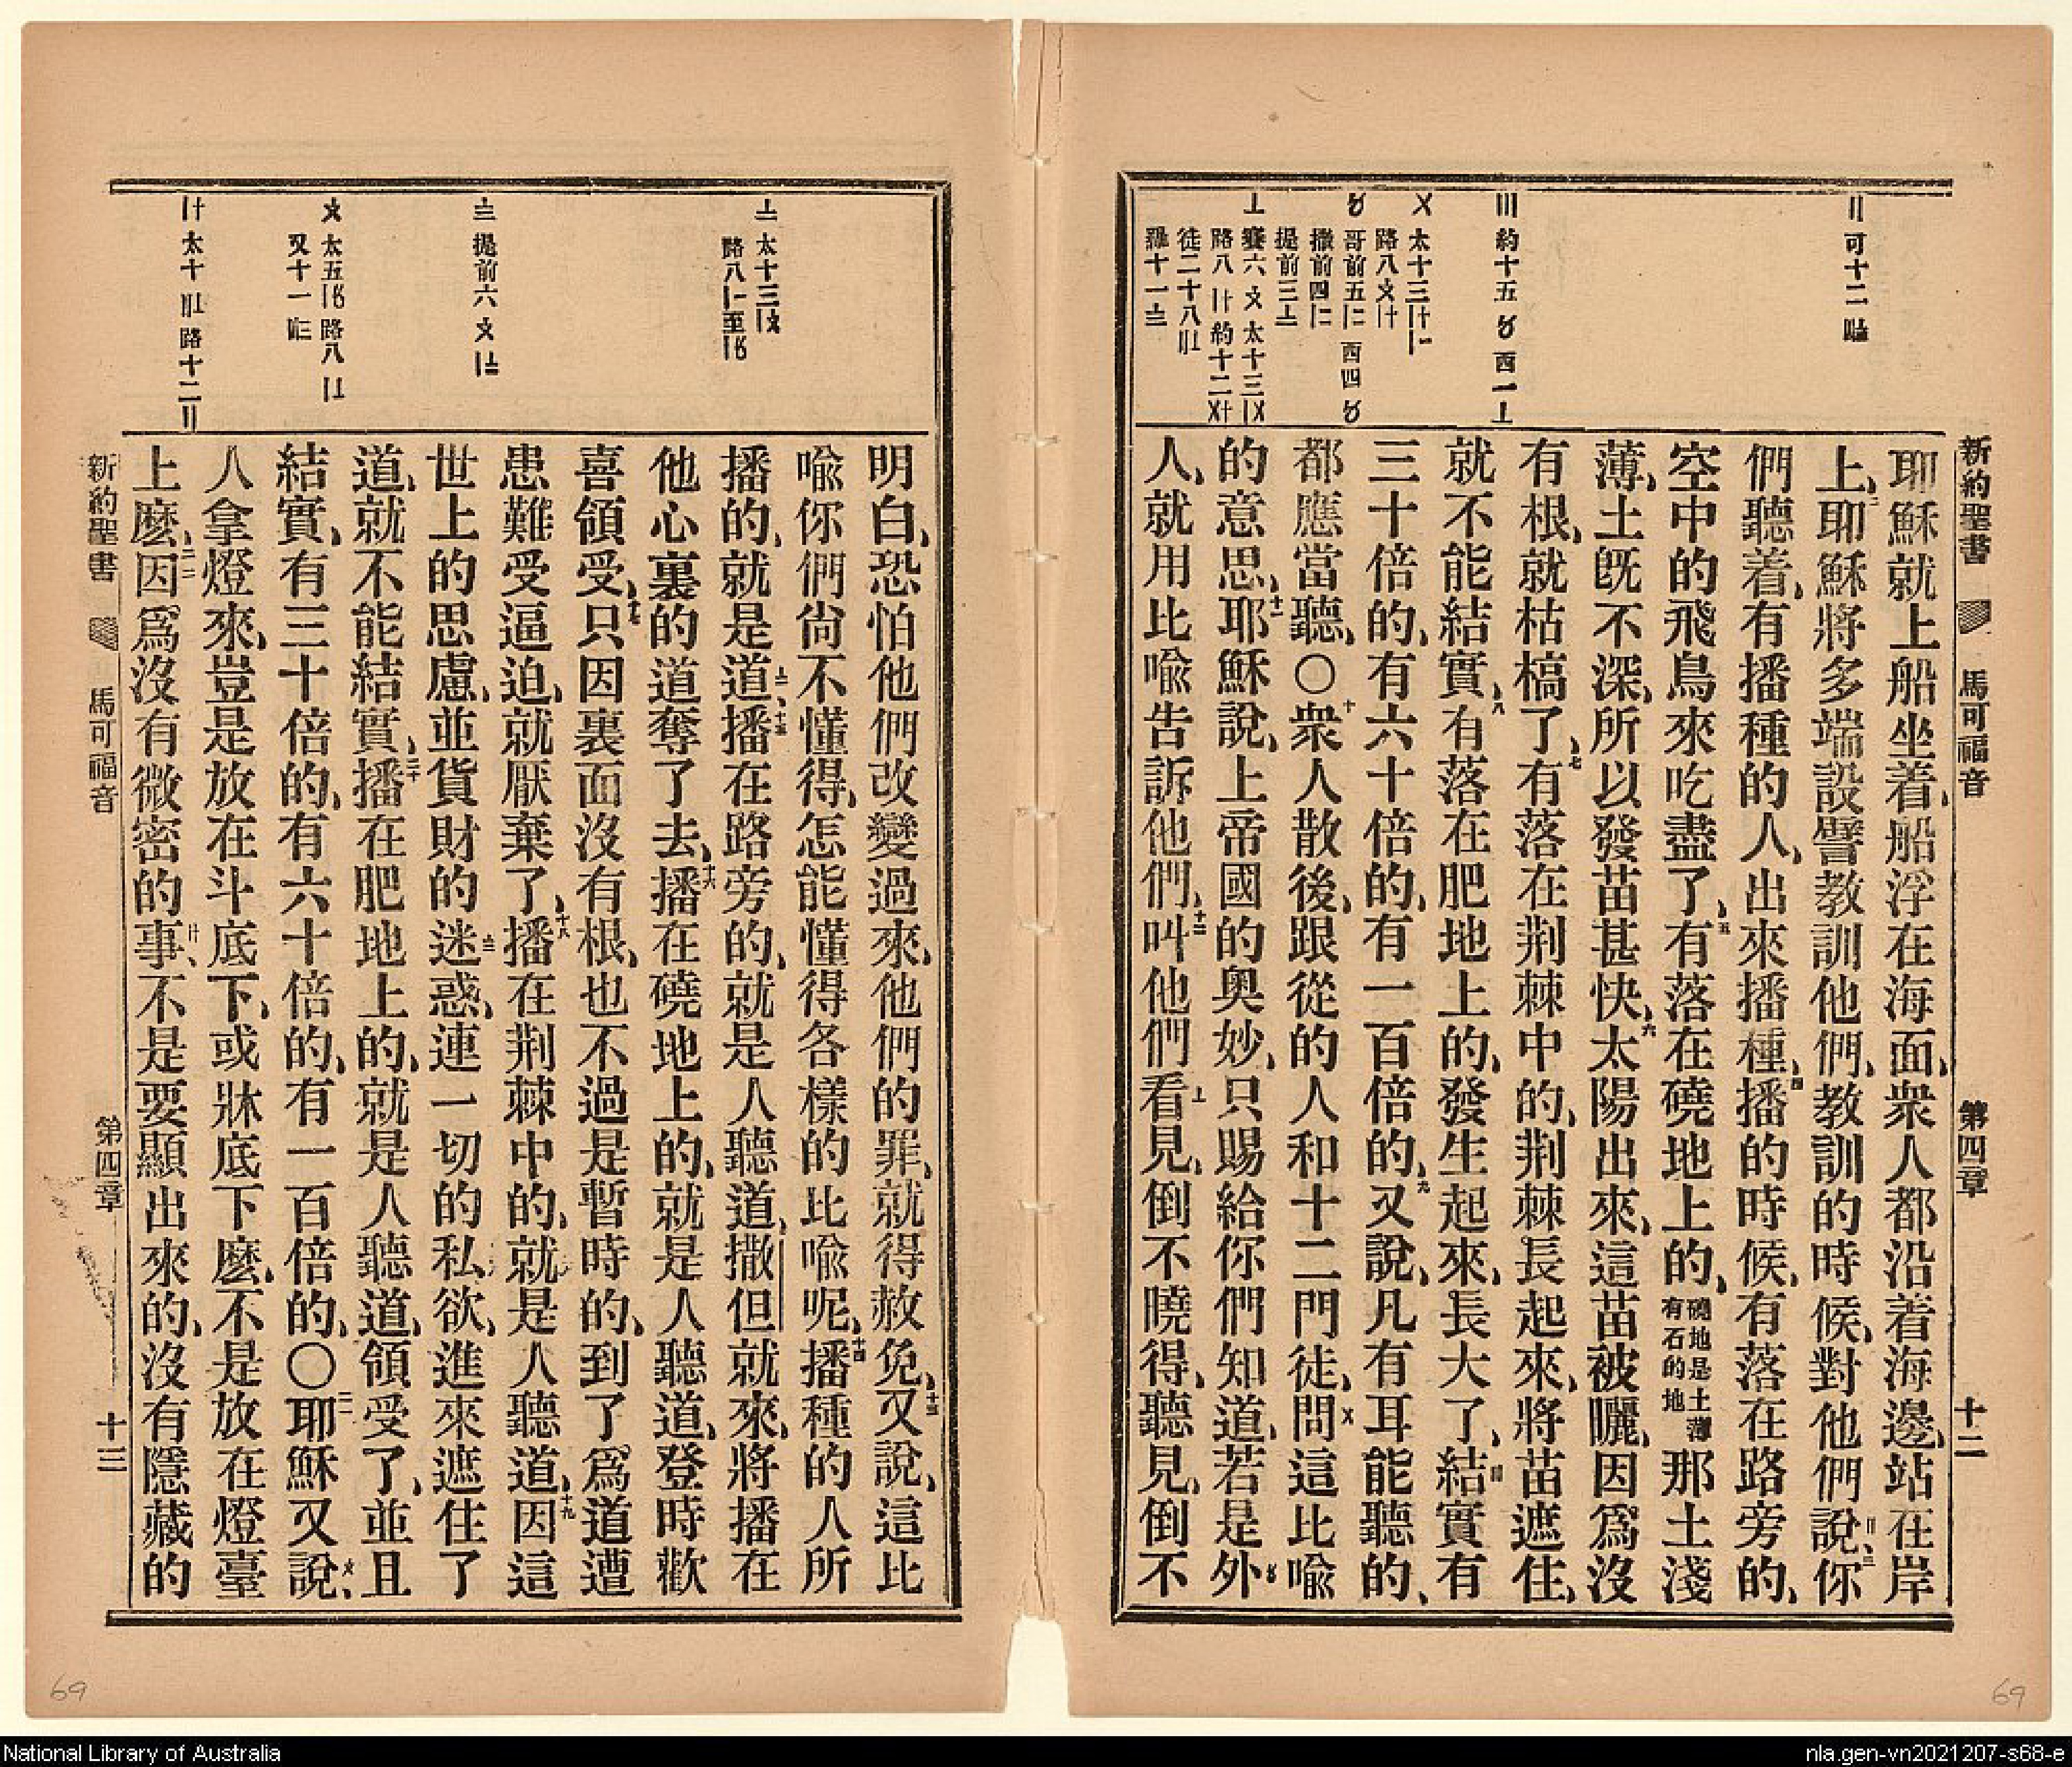 新約聖書 馬可福音 第四章 十二
〢可十二
〣約十五〥西一〦
〤太十三
路八
〥哥前五 西四〥
撒前四
提前三
〦賽六〩太十三
路八 約十二
徒二十八
羅十一
耶穌就上船坐着、船浮在海面、衆人都沿着海邊、站在岸
上、二耶穌將多端設譬教訓他們、教訓的時候、對他們說、〢三你
們聽着、有播種的人、出來播種、四播的時候、有落在路旁的、
空中的飛鳥來吃盡了、五有落在磽地上的、磽地是土薄有石的地那土淺
薄、土既不深、所以發苗甚快、六太陽出來、這苗被曬、因爲沒
有根、就枯槁了、七有落在荆棘中的、荆棘長起來、將苗遮住、
就不能結實、八有落在肥地上的、發生起來、長大了、〣結實有
三十倍的、有六十倍的、有一百倍的、九又說、凡有耳能聽的、
都應當聽、〇十衆人散後、跟從的人和十二門徒、〤問這比喩
的意思、十一耶穌說、上帝國的奧妙、只賜給你們知道、若是〥外
人、就用比喩告訴他們、十二叫他們〦看見、倒不曉得、聽見、倒不
〧太十三
路八 至
〨提前六〩
〩太五 路八
又十一
太十 路十二〢
明白、恐怕他們改變過來、他們的罪、就得赦免、十三又說、這比
喩你們尙不懂得、怎能懂得各樣的比喩呢、十四播種的人所
播的、就是道、〧十五播在路旁的、就是人聽道、撒但就來、將播在
他心裏的道奪了去、十六播在磽地上的、就是人聽道、登時歡
喜領受、十七只因裏面沒有根、也不過是暫時的、到了爲道遭
患難受逼迫、就厭棄了、十八播在荆棘中的、就是人聽道、十九因這
世上的思慮、並貨財的〨迷惑、連一切的私欲、進來遮住了
道、就不能結實、二十播在肥地上的、就是人聽道、領受了、並且
結實、有三十倍的、有六十倍的、有一百倍的、〇二一耶穌又說、〩
人拿燈來、豈是放在斗底下、或牀底下麽、不是放在燈臺
上麽、二二因爲沒有微密的事、不是要顯出來的、沒有隱藏的
新約聖書 馬可福音 第四章 十三
69
69
National Library of Australia
nla.gen-vn2021207-s68-e